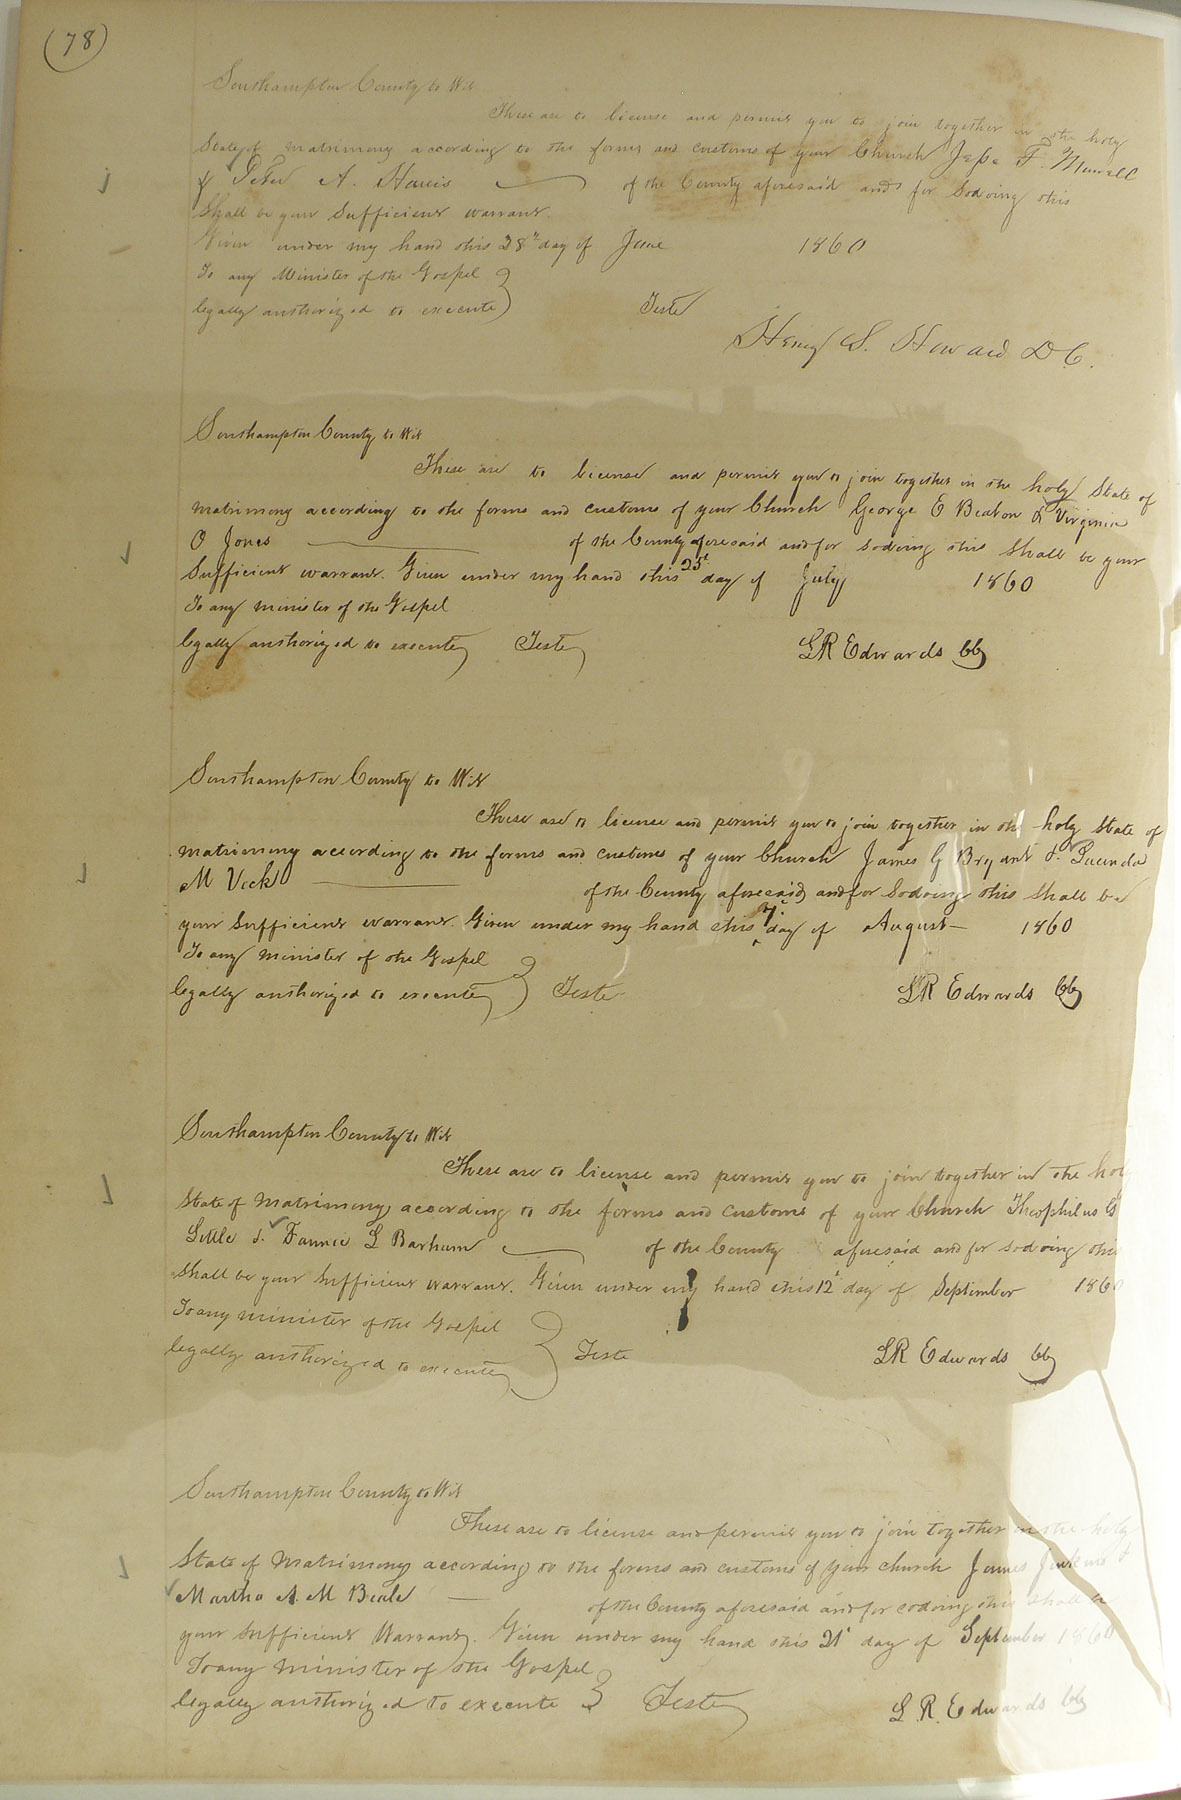 (78)
Southampton County to Wit
These are to license and permit you to join together in the holy
State of matrimony according to the forms and customs of your Church Jesse F. Murrell
& A. Harris of the County aforesaid and for so doing this
Shall be your Sufficient warrant.
Given under my hand this 28th day of June 1860
To any Minister of the Gospel
legally authorized to execute Teste
Henry S. Howard D C.
Southampton County to Wit
These are to license and permit you to join together in the holy State of
matrimony according to the forms and customs of your Church George E Beaton & Virginia
O Jones of the County aforesaid and for so doing this Shall be your
Sufficient warrant. Given under my hand this 25 day of July 1860
To any minister of the Gospel
legally authorized to execute Teste LR Edwards
Southampton County to Wit
These are to license and permit you to join together in the holy State of
matrimony according to the forms and customs of your Church James G Bryant & Lucinda
M Vick of the County aforesaid and for so doing this Shall be
your Sufficient warrant. Given under my hand this 7 day of August 1860
To any minister of the Gospel
legally authorized to execute Teste LR Edwards
Southampton County to Wit
These are to license and permit you to join together in the hol
State of Matrimony according to the forms and customs of your Church Theophilus
& Fannie L Barham of the County aforesaid and for so doing this
Shall be your Sufficient warrant. Given under my hand this 12 day of September 1860
To any minister of the Gospel
legally authorized to execute Teste LR Edwards
Southampton County to Wit
These are to license and permit you to join together in the holy
State of Matrimony according to the forms and customs of your church James Jenkins &
Martha A. M Beale of the County aforesaid and for so doing this Shall
your Sufficient Warrant. Given under my hand this 21 day of September 1860
To any minister of the Gospel
legally authorized to execute Teste L R. Edwards